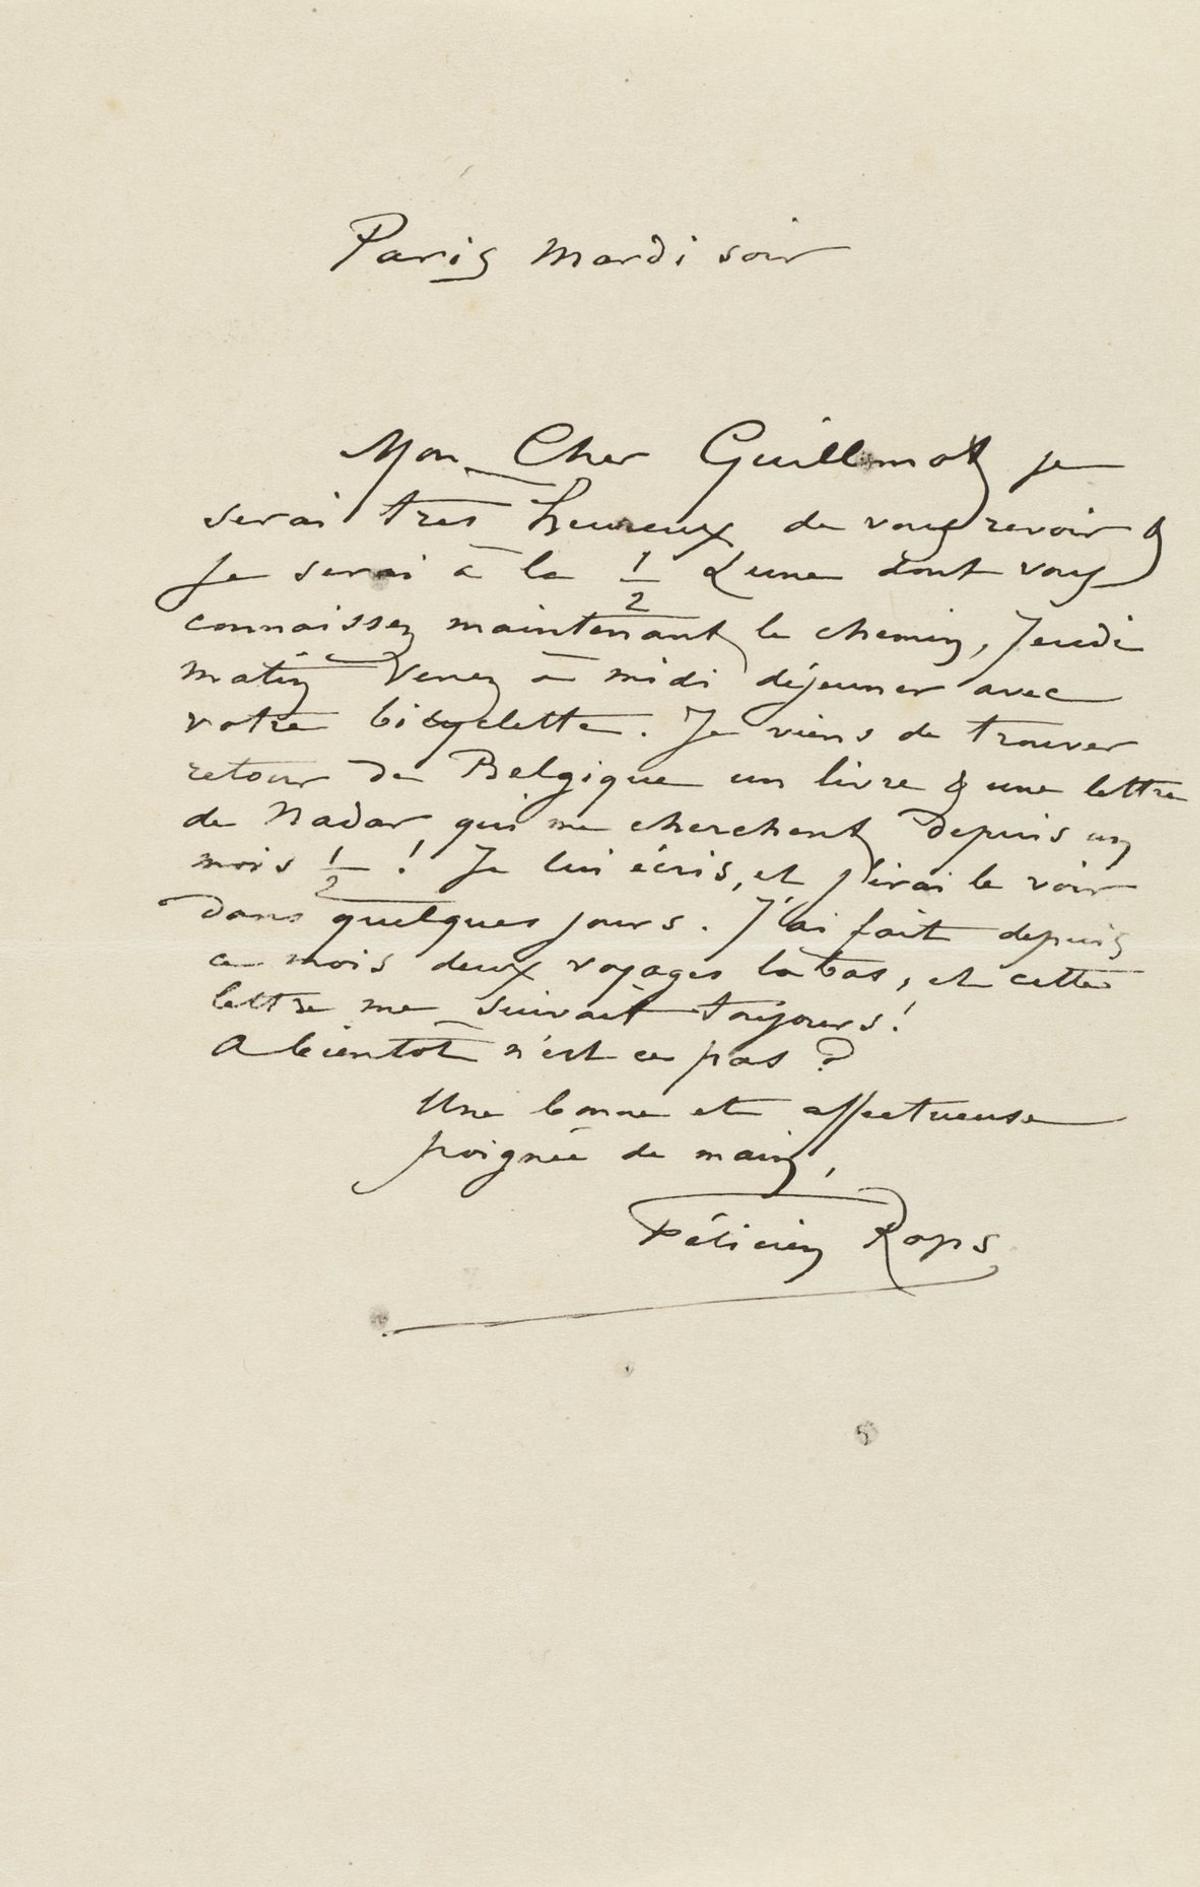 Paris mardi soir
Mon Cher Guillemot je
serai tres heureux de vous revoir &
je serai à la 1/2 Lune dont vous
connaissez maintenant le chemin, Jeudi
matin Venez à midi déjeuner avec
votre bicyclette. Je viens de trouver
retour de Belgique un livre & une lettre
de Nadar qui me cherchent depuis un
mois 1/2 ! Je lui écris, et j'irai le voir
dans quelques jours. J'ai fait depuis
ce mois deux voyages là bas, et cette
lettre me suivait toujours !
A bientôt n'est ce pas ?
Une bonne et affectueuse
poignée de main,
Félicien Rops